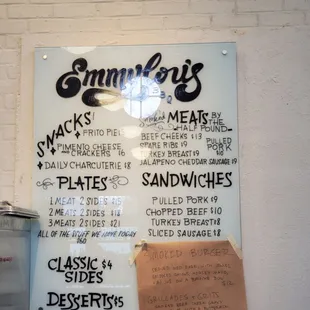 Emmylou's
BBQ
SNACKS!
FRITO PIE
PIMENTO CHEESE
AND CRACKERS $6
DAILY CHARCUTERIE $8
Smoked MEATS BY THE
HALF POUND
BEEF CHEEKS $13
SPARE RIBS $9
TURKEY BREAST $9
JALAPENO CHEDDAR SAUSAGE $9
PULLED
PORK
PLATES
1 MEAT 2 SIDES
2 MEATS 2 SIDES $18
3 MEATS 2 SIDES $21
ALL OF THE STUFF WE HAVE TODAY
$60
SANDWICHES
PULLED PORK $9
CHOPPED BEEF $10
TURKEY BREAST $8
SLICED SAUSAGE $9
CLASSIC $4
SIDES
DESSERTS $5
SMOKED BURGER
GRILLADES + GRITS